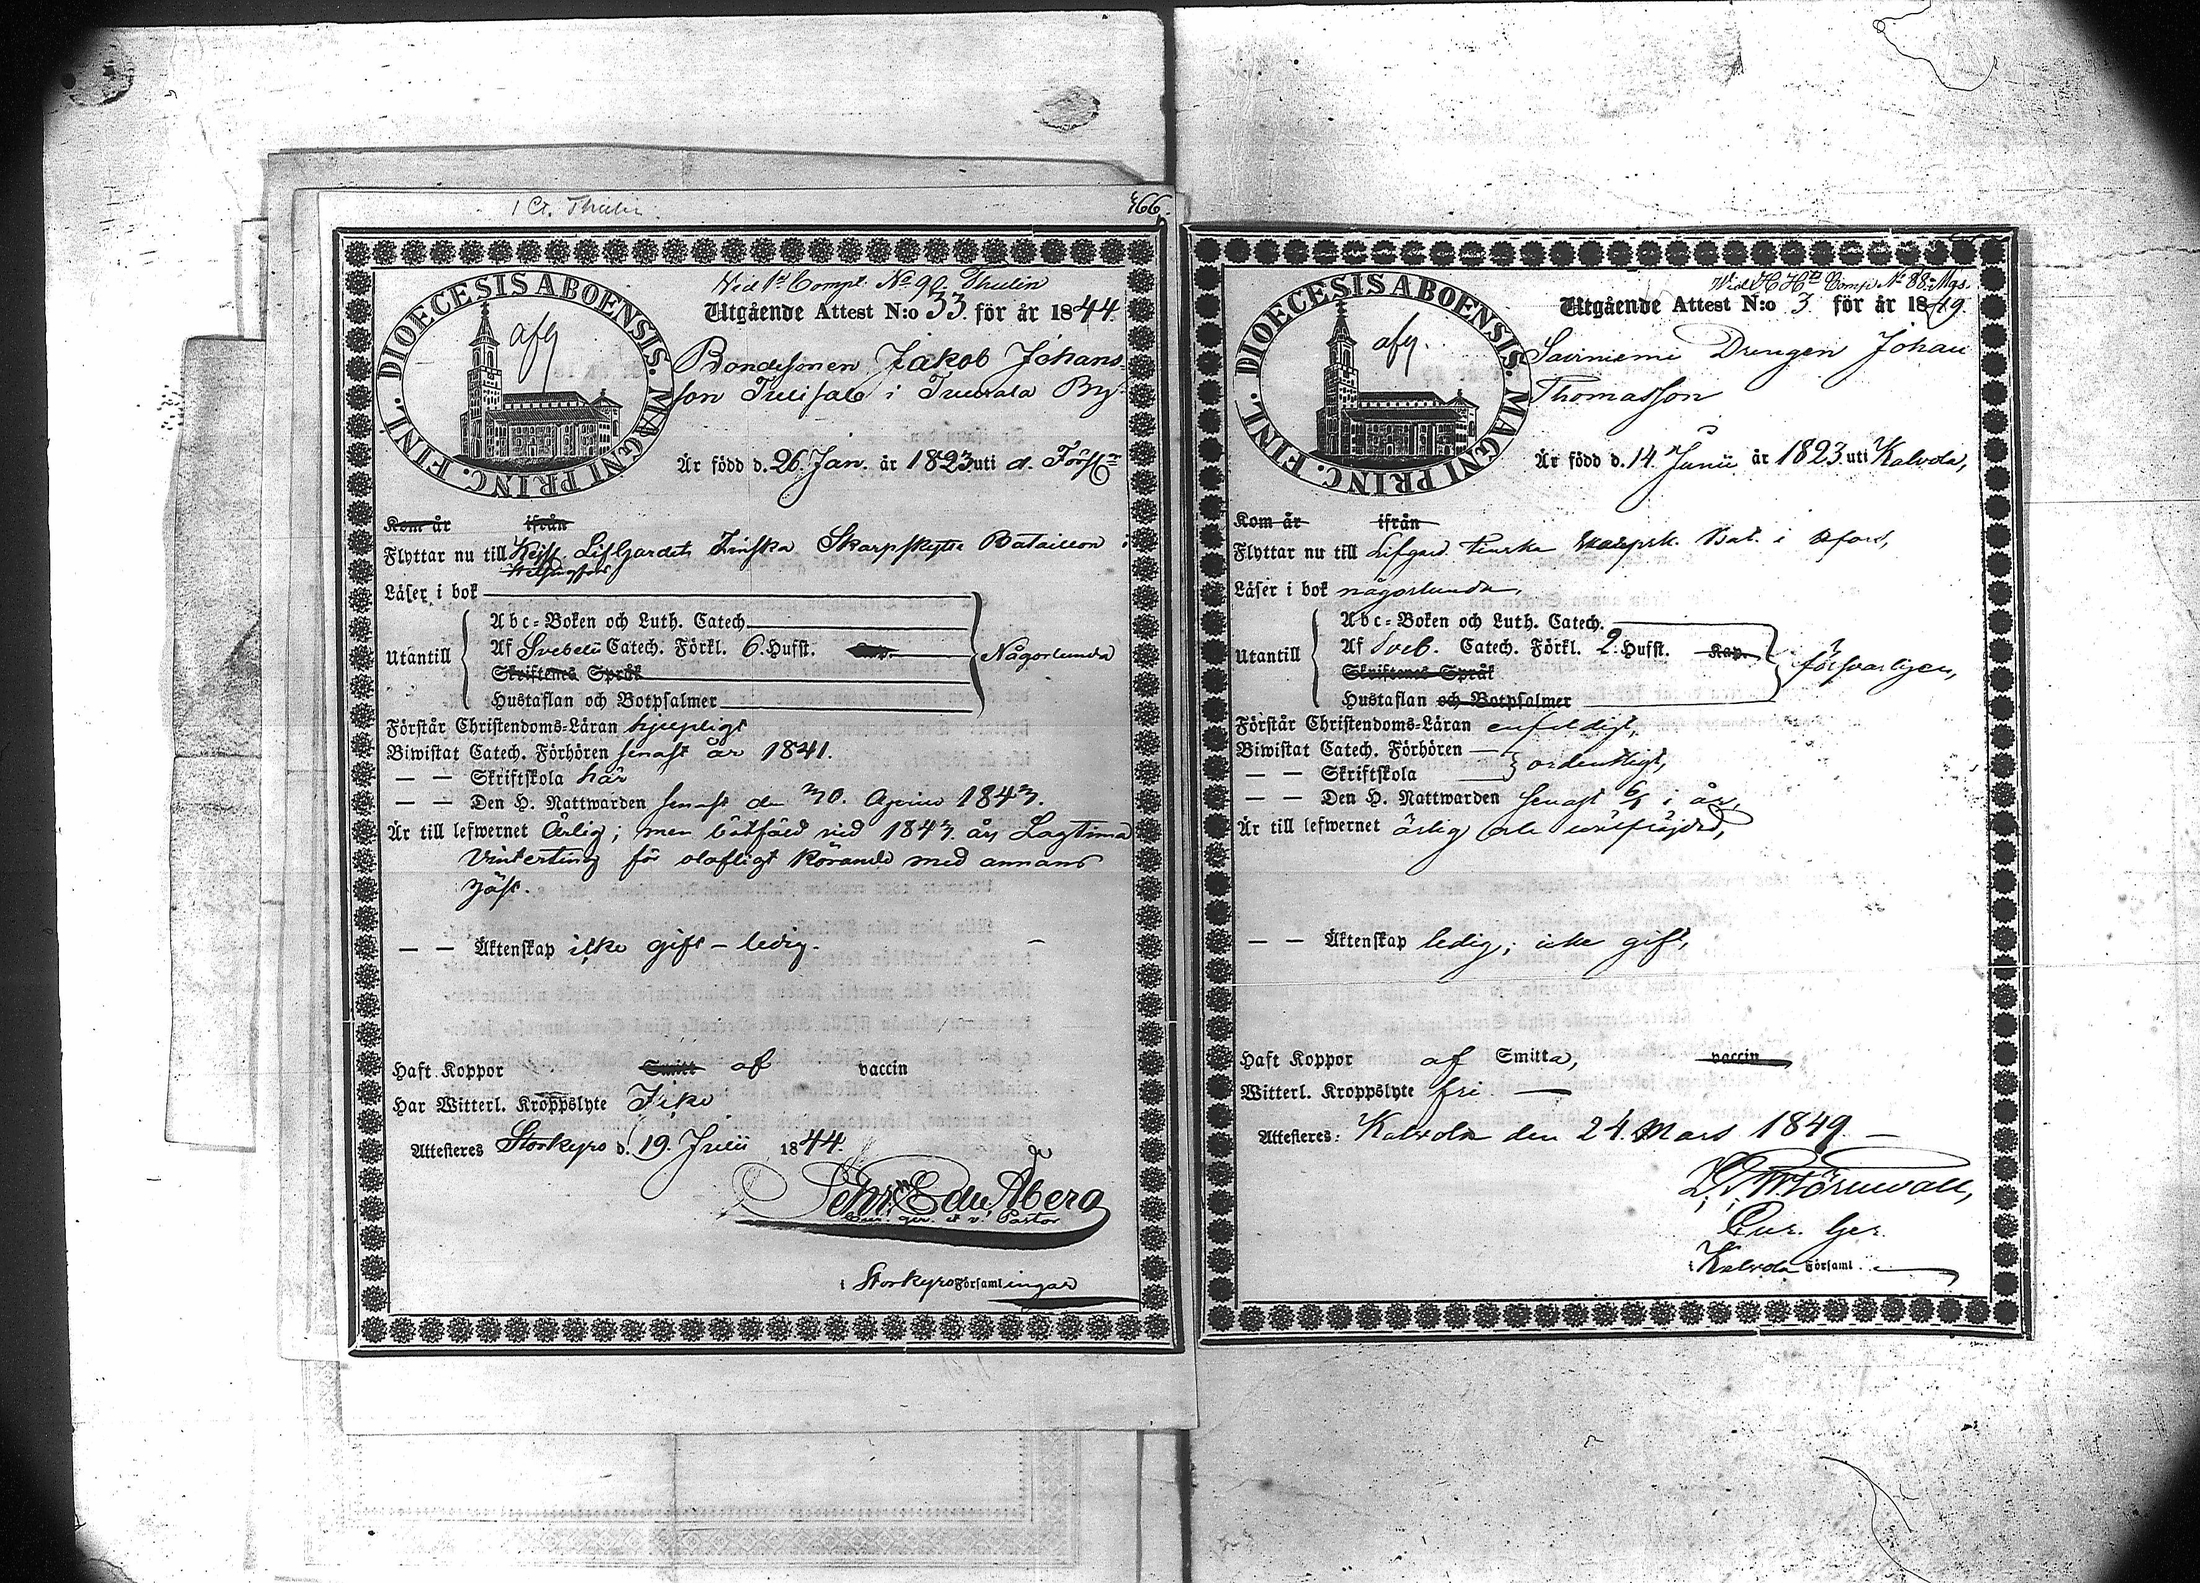 1 Ct. Thulin
466.
DIOECESIS ABOENSIS. MAGNI PRINC. FINL.
afg
Vid 1st Compt. No 90. Thulin
Utgående Attest N:o 33. för år 1844.
Bondesonen Jakob Johans-
son Tuurala By
Är född d. 26. Jan. år 1823 uti d. Först.
Kom år ifrån
Flyttar nu till Kejs. Lifgardets Finska Skarpskytte Bataillon i
Helsingfors
Läser i bok
Utantill
Abc-Boken och Luth. Catech.
Af Svebelii Catech. Förkl. 6. Hufst.
Skriftenes Språk
Hustaflan och Botpsalmer
Någorlunda
Förstår Christendoms-Läran hjelpligt
Biwistat Catech. Förhören senast år 1841.
— — Skriftskola här
— — Den H. Nattwarden senast den 30. April 1843.
Är till lefwernet Ärlig; men bötfäld vid 1843 års Lagtima
Vinterting för olofligt körande med annans
häst.
— — Äktenskap icke gift – ledig.
Haft Koppor Smitt af vaccin
Har Witterl. Kroppslyte Icke
Attesteres Storkyro d. 19. Julii 1844.
Edu Åberg
Cur. ger. t. v. Pastor
i Storkyro Församlingar
DIOECESIS ABOENSIS. MAGNI PRINC. FINL.
afg.
Vid Comp. No 88. Mgs.
Utgående Attest N:o 3. för år 1849.
Sairniemi Drengen Johan
Thomasson
Är född d. 14. Junii år 1823 uti Kalvola,
Kom år ifrån
Flyttar nu till Lifgard. Finska Skarpsk. Bat. i Hfors,
Läser i bok någorlunda,
Utantill
Abc-Boken och Luth. Catech.
Af Sveb. Catech. Förkl. 2. Hufst. Kap.
Skriftenes Språk
Hustaflan och Botpsalmer
försvarligen,
Förstår Christendoms-Läran enfeldigt,
Biwistat Catech. Förhören —
— — Skriftskola
ordentligt,
— — Den H. Nattwarden senast 6/1 i år,
Är till lefwernet ärlig och wälfräjdad,
— — Äktenskap ledig; icke gift,
Haft Koppor af Smitta, vaccin
Witterl. Kroppslyte fri —
Attesteres: Kalvola den 24. Mars 1849. —
Törnwall,
Cur. Ger.
i Kalvola Församl.